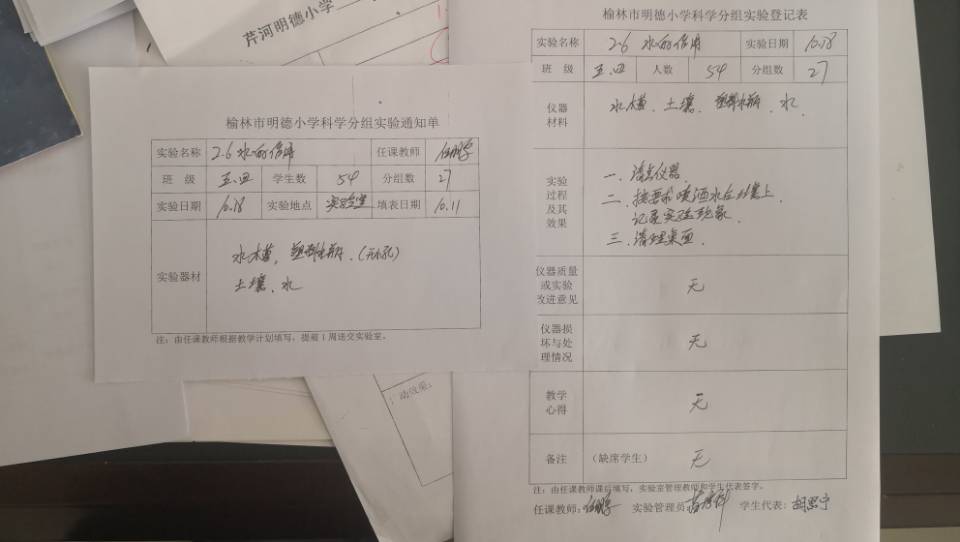 芹河明德小学
榆林市明德小学科学分组实验通知单
实验名称 2.6 水的作用 任课教师
班 级 五.四 学生数 54 分组数 27
实验日期 10.18 实验地点 实验室 填表日期 10.11
实验器材
水槽、塑料水瓶、(元小孔)
土壤、水
注：由任课教师根据教学计划填写，提前1周送交实验室。
动效果：
榆林市明德小学科学分组实验登记表
实验名称 2.6 水的作用 实验日期 10.18
班 级 五.四 人数 54 分组数 27
仪器材料 水槽、土壤、塑料水瓶、水
实验过程及其效果
一、清点仪器
二、按要求喷洒水在土壤上，
记录实验现象
三、清理桌面.
仪器质量或实验改进意见 无
仪器损坏与处理情况 无
教学心得 无
备注 (缺席学生) 无
注：由任课教师课后填写，实验室管理教师和学生代表签字。
任课教师： 实验管理员： 学生代表：胡思宁